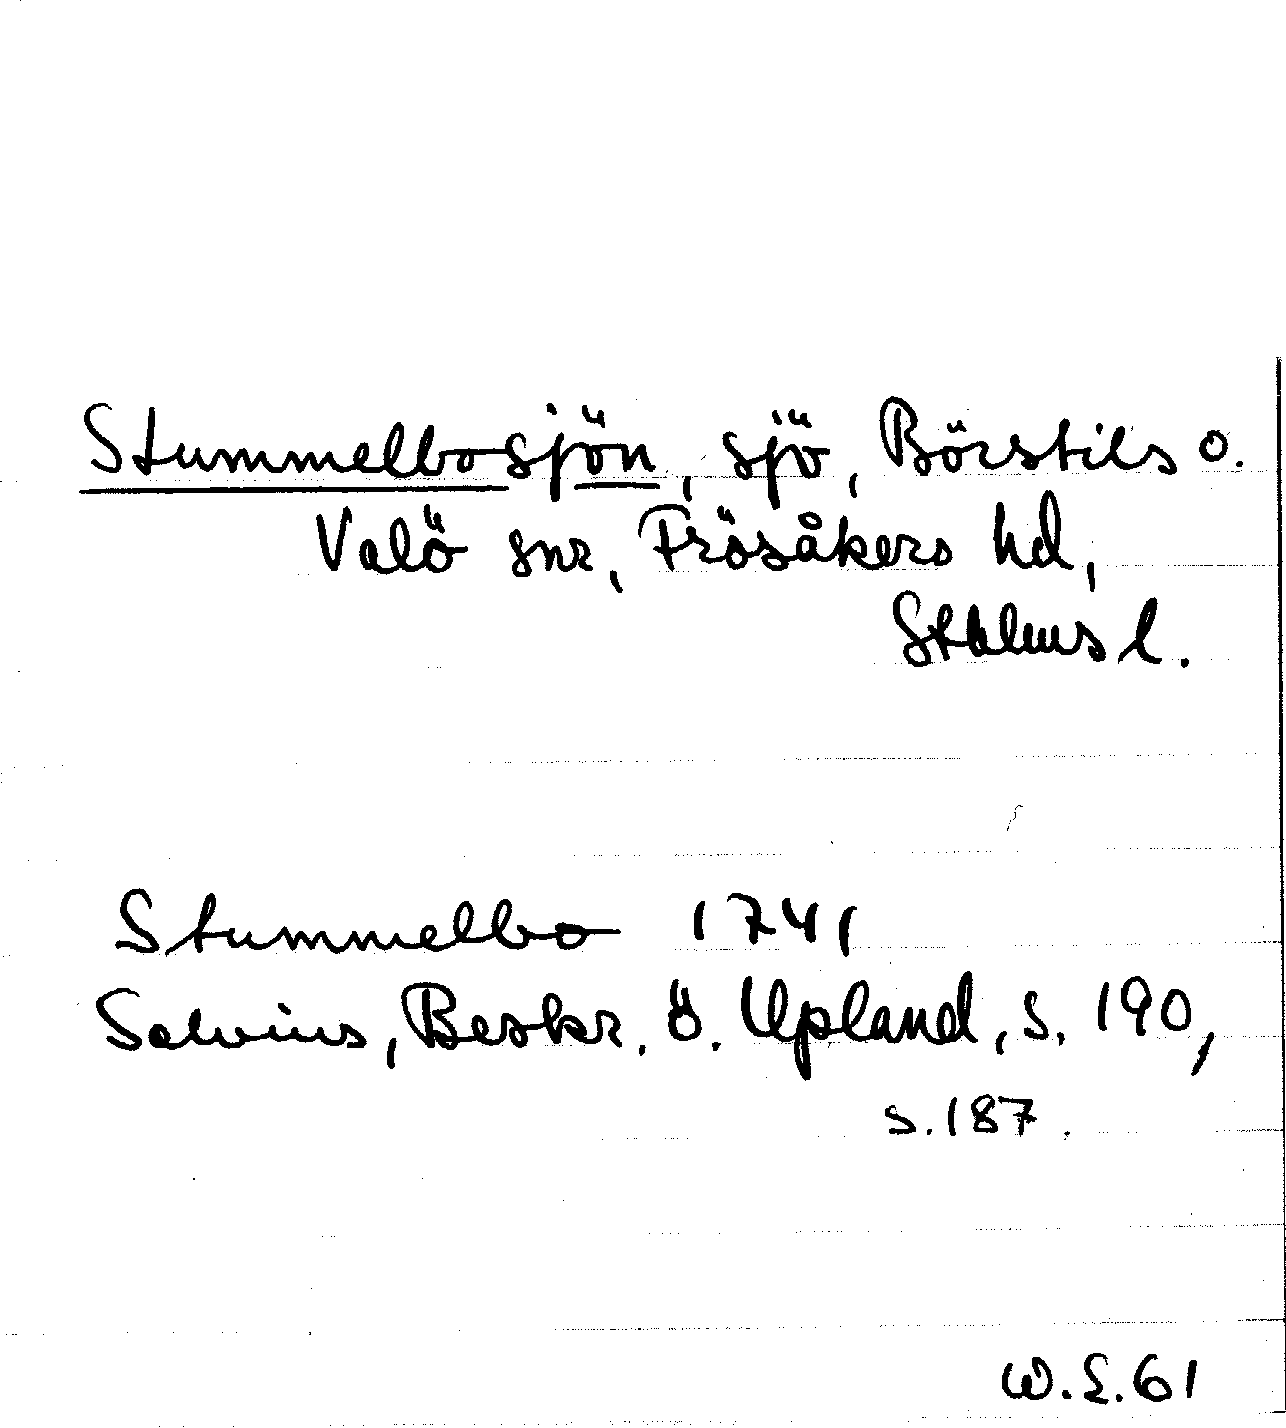 Stummelbosjön, sjö, Börstils o.
Valö snr, Frösåkers hd,
Sthlms l.
Stummelbo 1741
Salvius, Beskr. ö. Upland, s. 190,
s. 187.
W.E. 61